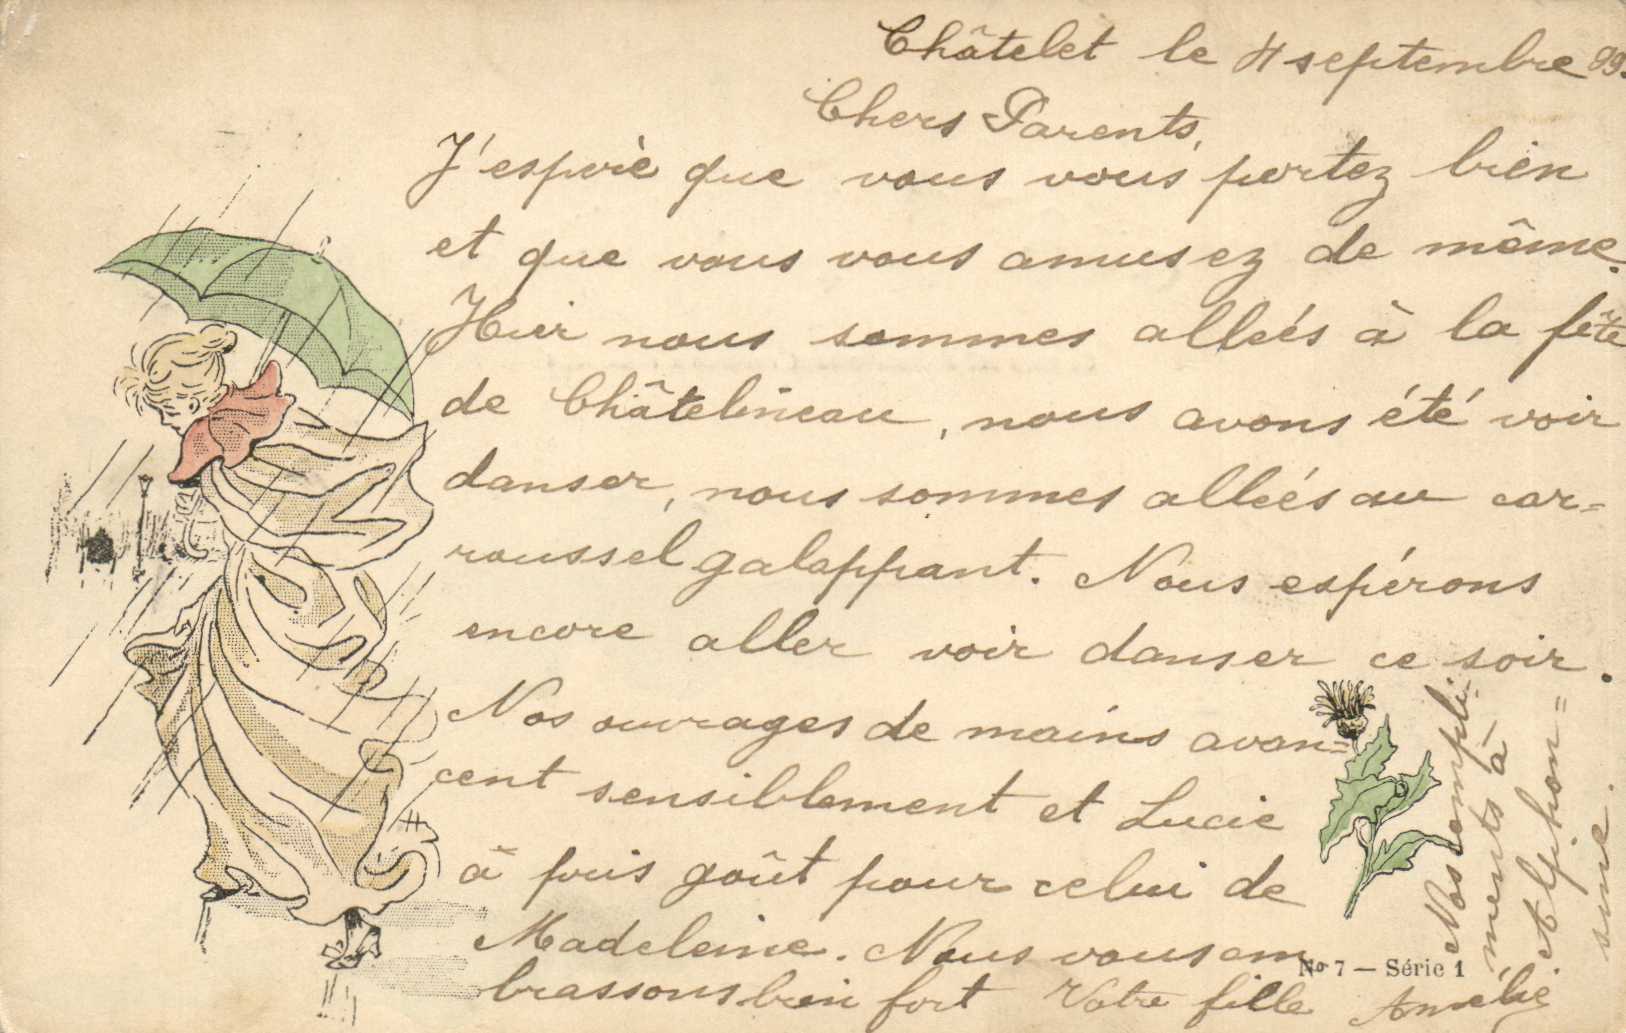 Châtelet le 4 septembre 99.
Chers Parents,
J'espère que vous vous portez bien
et que vous vous amusez de même.
Hier nous sommes alleés à la fête
de Châtelineau, nous avons été voir
danser, nous sommes alleés au car=
roussel galoppant. Nous espérons
encore aller voir danser ce soir.
Nos ouvrages de mains avan=
cent sensiblement et Lucie
à pris goût pour celui de
Madeleine. Nous vous em
brassons bien fort Votre fille Amélie
Nos compli=
ments à
Alphon=
sine.
No 7 — Série 1
H